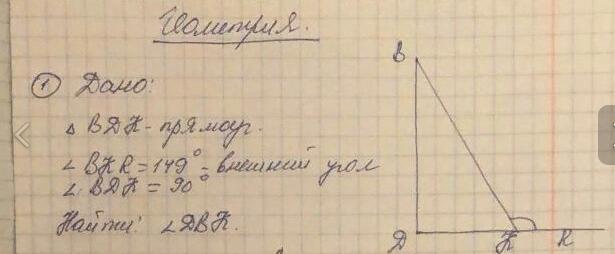 Геометрия.
① Дано:
△ ВДК - прямоуг.
∠ ВКR = 149° - внешний угол
∠ ВДК = 90°
Найти: ∠ДВК.
В
Д К R